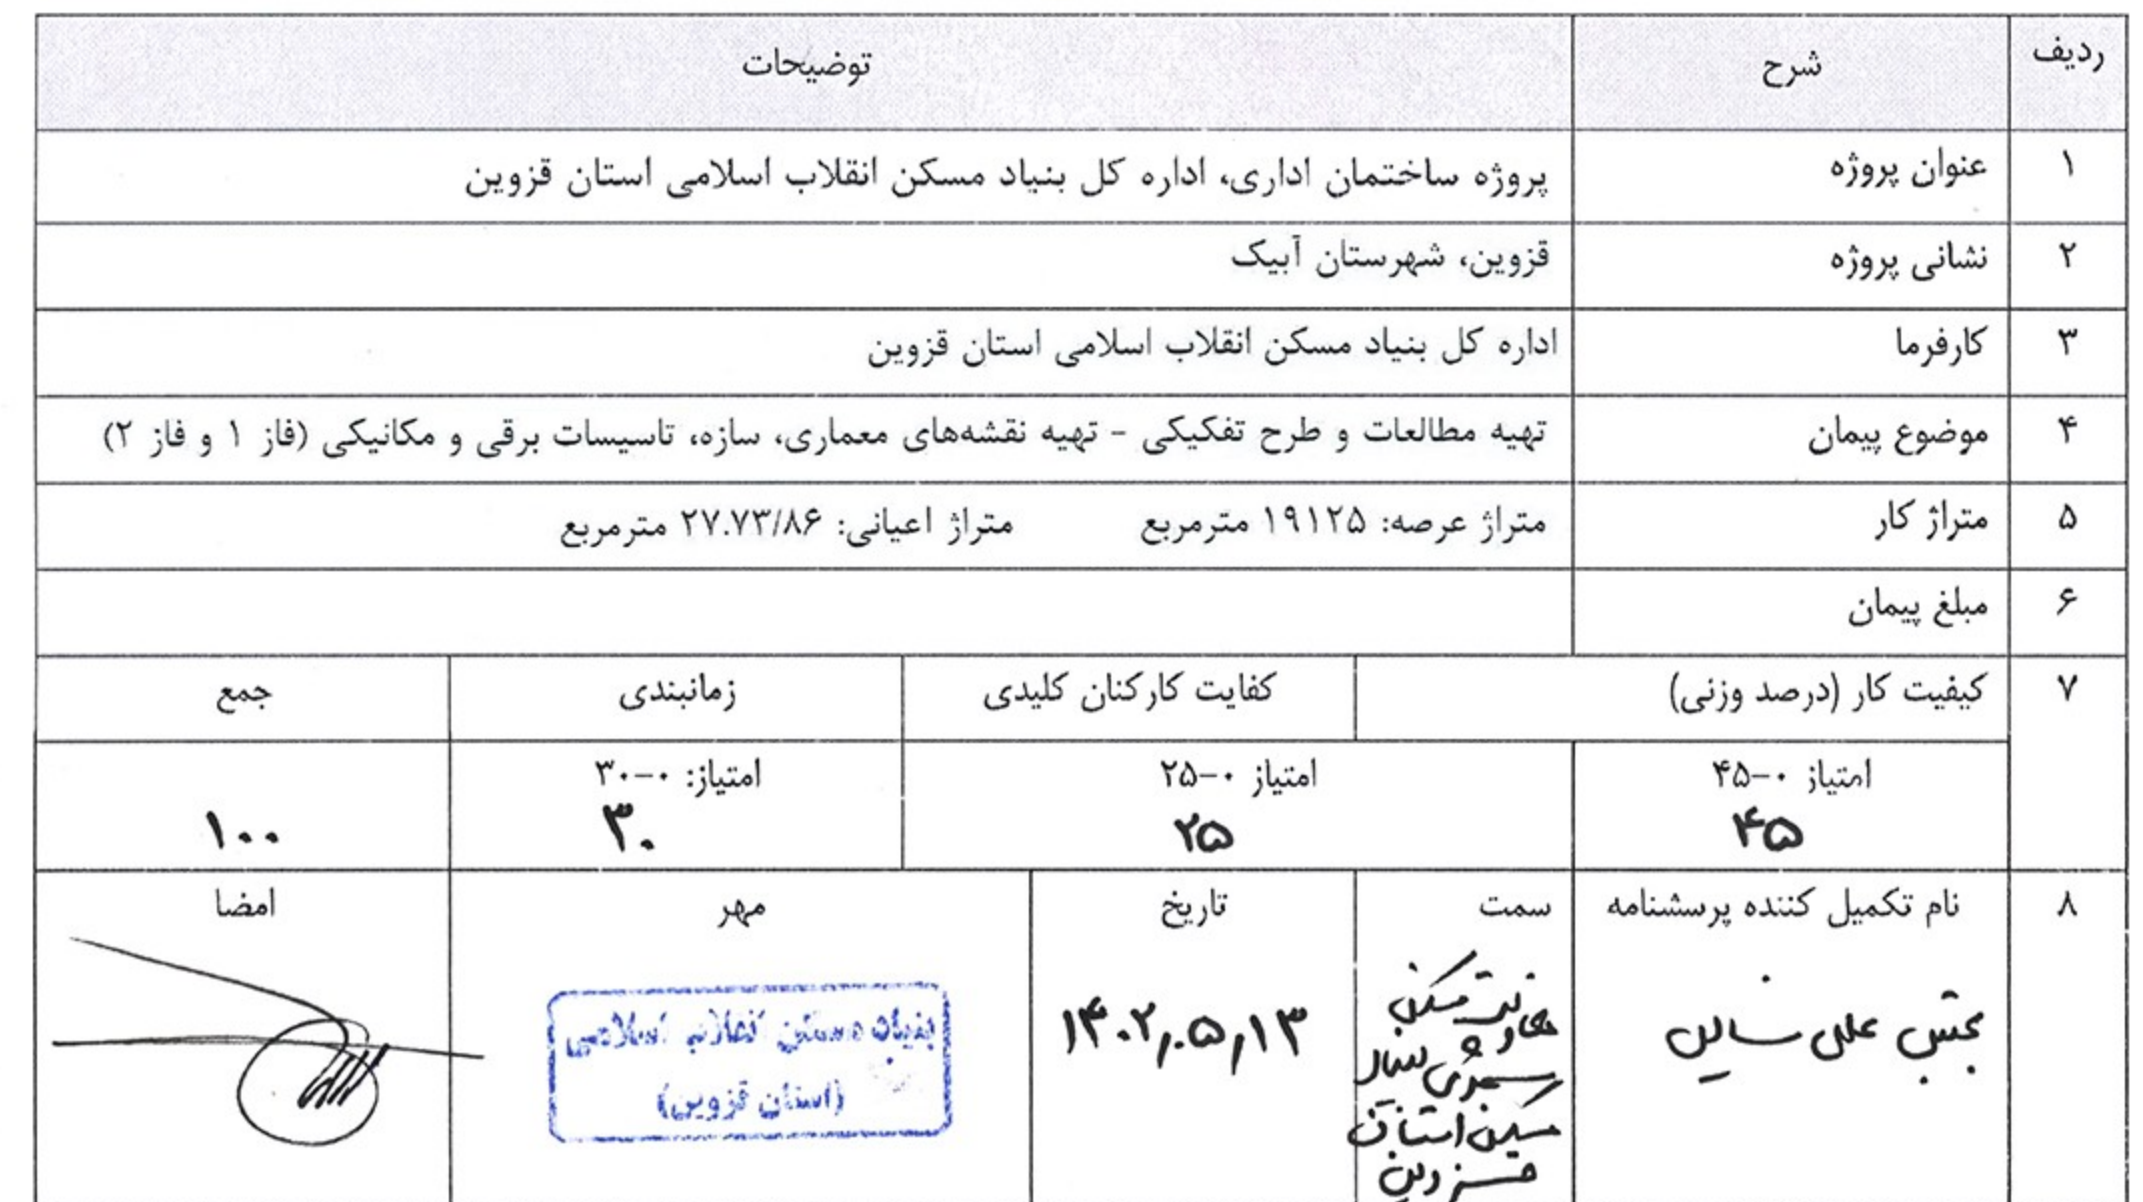 ردیف شرح توضیحات
۱ عنوان پروژه پروژه ساختمان اداری، اداره کل بنیاد مسکن انقلاب اسلامی استان قزوین
۲ نشانی پروژه قزوین، شهرستان آبیک
۳ کارفرما اداره کل بنیاد مسکن انقلاب اسلامی استان قزوین
۴ موضوع پیمان تهیه مطالعات و طرح تفکیکی - تهیه نقشه‌های معماری، سازه، تاسیسات برقی و مکانیکی (فاز ۱ و فاز ۲)
۵ متراژ کار متراژ عرصه: ۱۹۱۲۵ مترمربع متراژ اعیانی: ۲۷.۷۳/۸۶ مترمربع
۶ مبلغ پیمان
۷ کیفیت کار (درصد وزنی) کفایت کارکنان کلیدی زمانبندی جمع
امتیاز ۰-۴۵ امتیاز ۰-۲۵ امتیاز: ۰-۳۰
۴۵ ۲۵ ۳۰ ۱۰۰
۸ نام تکمیل کننده پرسشنامه سمت تاریخ مهر امضا
علی
۱۴۰۲,۰۵,۱۳
معاونت مسکن
شهری بنیاد
مسکن استان
قزوین
بنیاد مسکن انقلاب اسلامی
(استان قزوین)